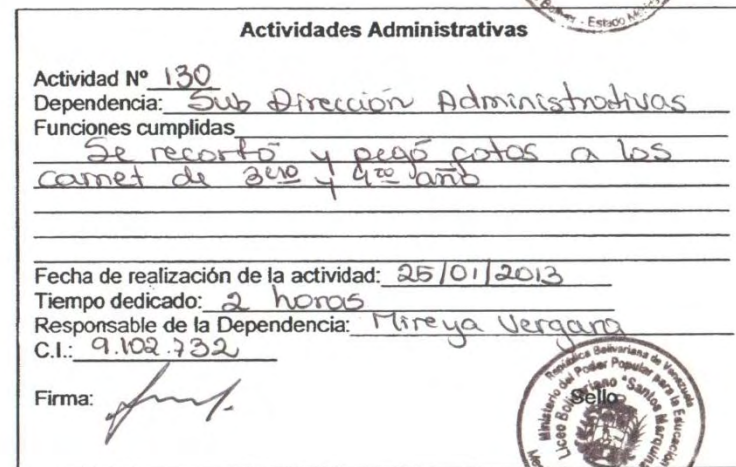 Bolívar - Estado Mérida
Actividades Administrativas
Actividad Nº 130
Dependencia: Sub Dirección Administrativas
Funciones cumplidas
Se recortó y pegó cotas a los
carnet de 3ero y 4to año
Fecha de realización de la actividad: 25/01/2013
Tiempo dedicado: 2 horas
Responsable de la Dependencia: Mireya Vergara
C.I.: 9.102.732
Firma:
Sello
República Bolivariana de Venezuela
Ministerio del Poder Popular para la Educación
Liceo Bolivariano "Santos Marquina